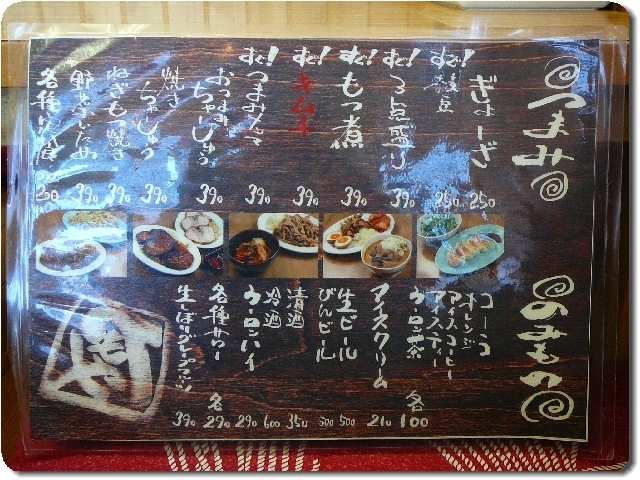 つまみ
ぎょーざ 250
すぐ! 枝豆 250
すぐ! 3点盛り 390
すぐ! もつ煮 390
すぐ! キムチ 390
すぐ! つまみメンマ 390
おつまみちゃーしゅう 390
焼きちゃーしゅう 390
ねぎもやし焼き 390
野菜いため 390
のみもの
コーラ
オレンジ
アイスコーヒー
アイスティー
ウーロン茶
各100
アイスクリーム 210
生ビール 500
びんビール 500
清酒 350
冷酒 600
ウーロンハイ 290
各種サワー 各290
生しぼりグレープフルーツ 390